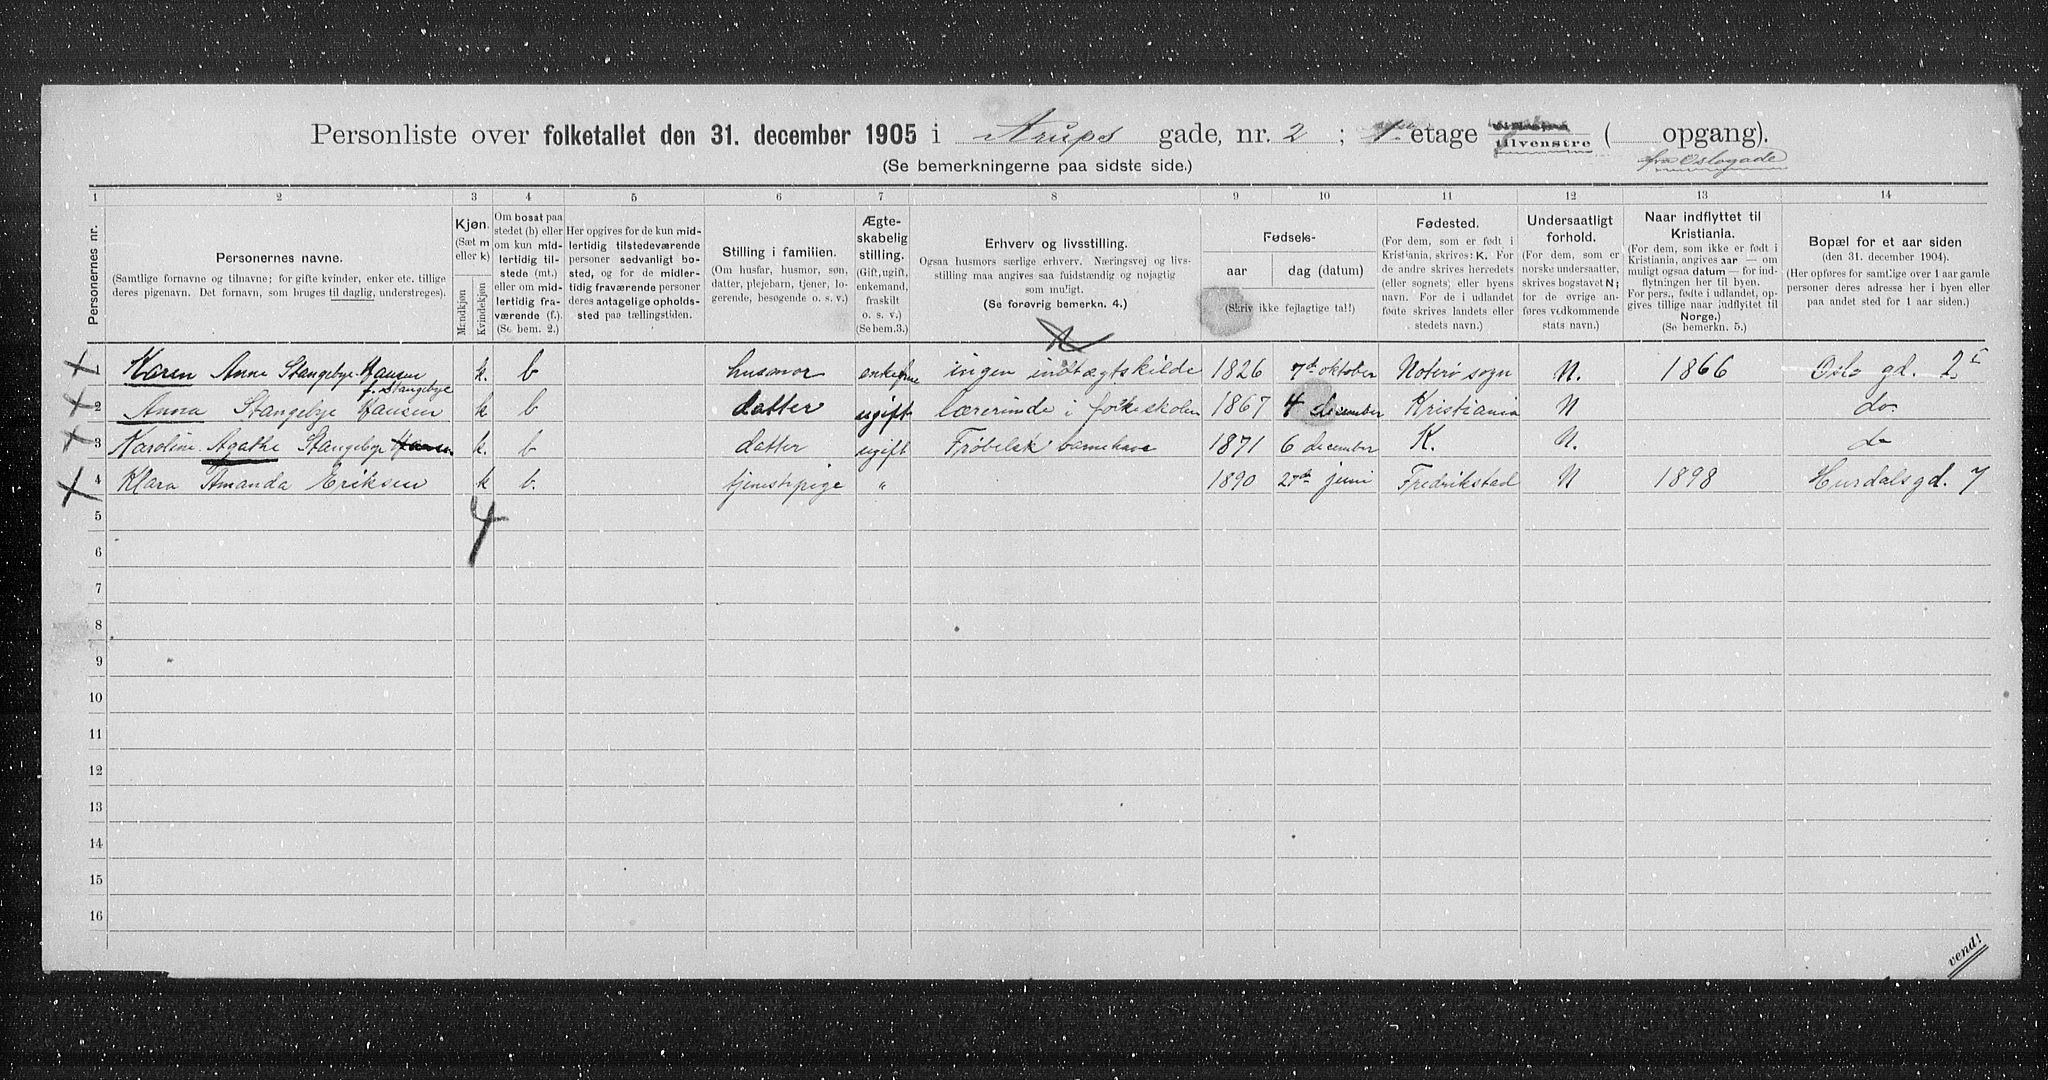 Personliste over folketallet den 31. december 1905 i Arups gade, nr. 2 ; 1. etage tilvenstre ( opgang).
(Se bemerkningerne paa sidste side.)
fra Oslogade
1 2 3 4 5 6 7 8 9 10 11 12 13 14
Personernes nr.
Personernes navne.
(Samtlige fornavne og tilnavne; for gifte kvinder, enker etc. tillige
deres pigenavn. Det fornavn, som bruges til daglig, understreges).
Kjøn.
(Sæt m
eller k)
Mandkjøn
Kvindekjøn
Om bosat paa
stedet (b) eller
om kun mid-
lertidig til-
stede (mt.)
eller om mid-
lertidig fra-
værende (f.).
(Se bem. 2.)
Her opgives for de kun mid-
lertidig tilstedeværende
personer sedvanligt bo-
sted, og for de midler-
tidig fraværende personer
deres antagelige opholds-
sted paa tællingstiden.
Stilling i familien.
(Om husfar, husmor, søn,
datter, plejebarn, tjener, lo-
gerende, besøgende o. s. v.)
Ægte-
skabelig
stilling.
(Gift, ugift,
enkemand,
fraskilt
o. s. v.)
(Se bem.3.)
Erhverv og livsstilling.
Ogsaa husmors særlige erhverv. Næringsvej og livs-
stilling maa angives saa fuldstændig og nøjagtig
som muligt.
(Se forøvrig bemerkn. 4.)
Fødsels-
aar
dag (datum)
(Skriv ikke fejlagtige tal!)
Fødested.
(For dem, som er født i
Kristiania, skrives: K. For
de andre skrives herredets
(eller sognets) eller byens
navn. For de i udlandet
fødte skrives landets eller
stedets navn.)
Undersaatligt
forhold.
(For dem, som er
norske undersaatter,
skrives bogstavet N;
for de øvrige an-
føres vedkommende
stats navn.)
Naar indflyttet til
Kristiania.
(For dem, som ikke er født i
Kristiania, angives aar — om
muligt ogsaa datum — for ind-
flytningen her til byen.
For pers., fødte i udlandet, op-
gives tillige naar indflyttet til
Norge.)
(Se bemerkn. 5.)
Bopæl for et aar siden
(den 31. december 1904).
(Her opføres for samtlige over 1 aar gamle
personer deres adresse her i byen eller
paa andet sted for 1 aar siden.)
1 Karen Anne Stangebye Hansen k. b husmor enkefrue ingen indtægtskilde 1826 7de oktober Noterø sogn N. 1866 Oslo gd. 2
f. Stangebye
2 Anna Stangebye Hansen k b datter ugift lærerinde i folkeskolen 1867 4 december Kristiania N do.
3 Karoline Agathe Stangebye Hansen k. b datter ugift Frøbelsk barnehave 1871 6 december K. N. do
4 Klara Amanda Eriksen k b. tjenestpige " 1890 27de juni Fredrikstad N 1898 Hurdalsgd. 7
4
5
6
7
7
8
9
10
11
12
13
14
15
16
vend!